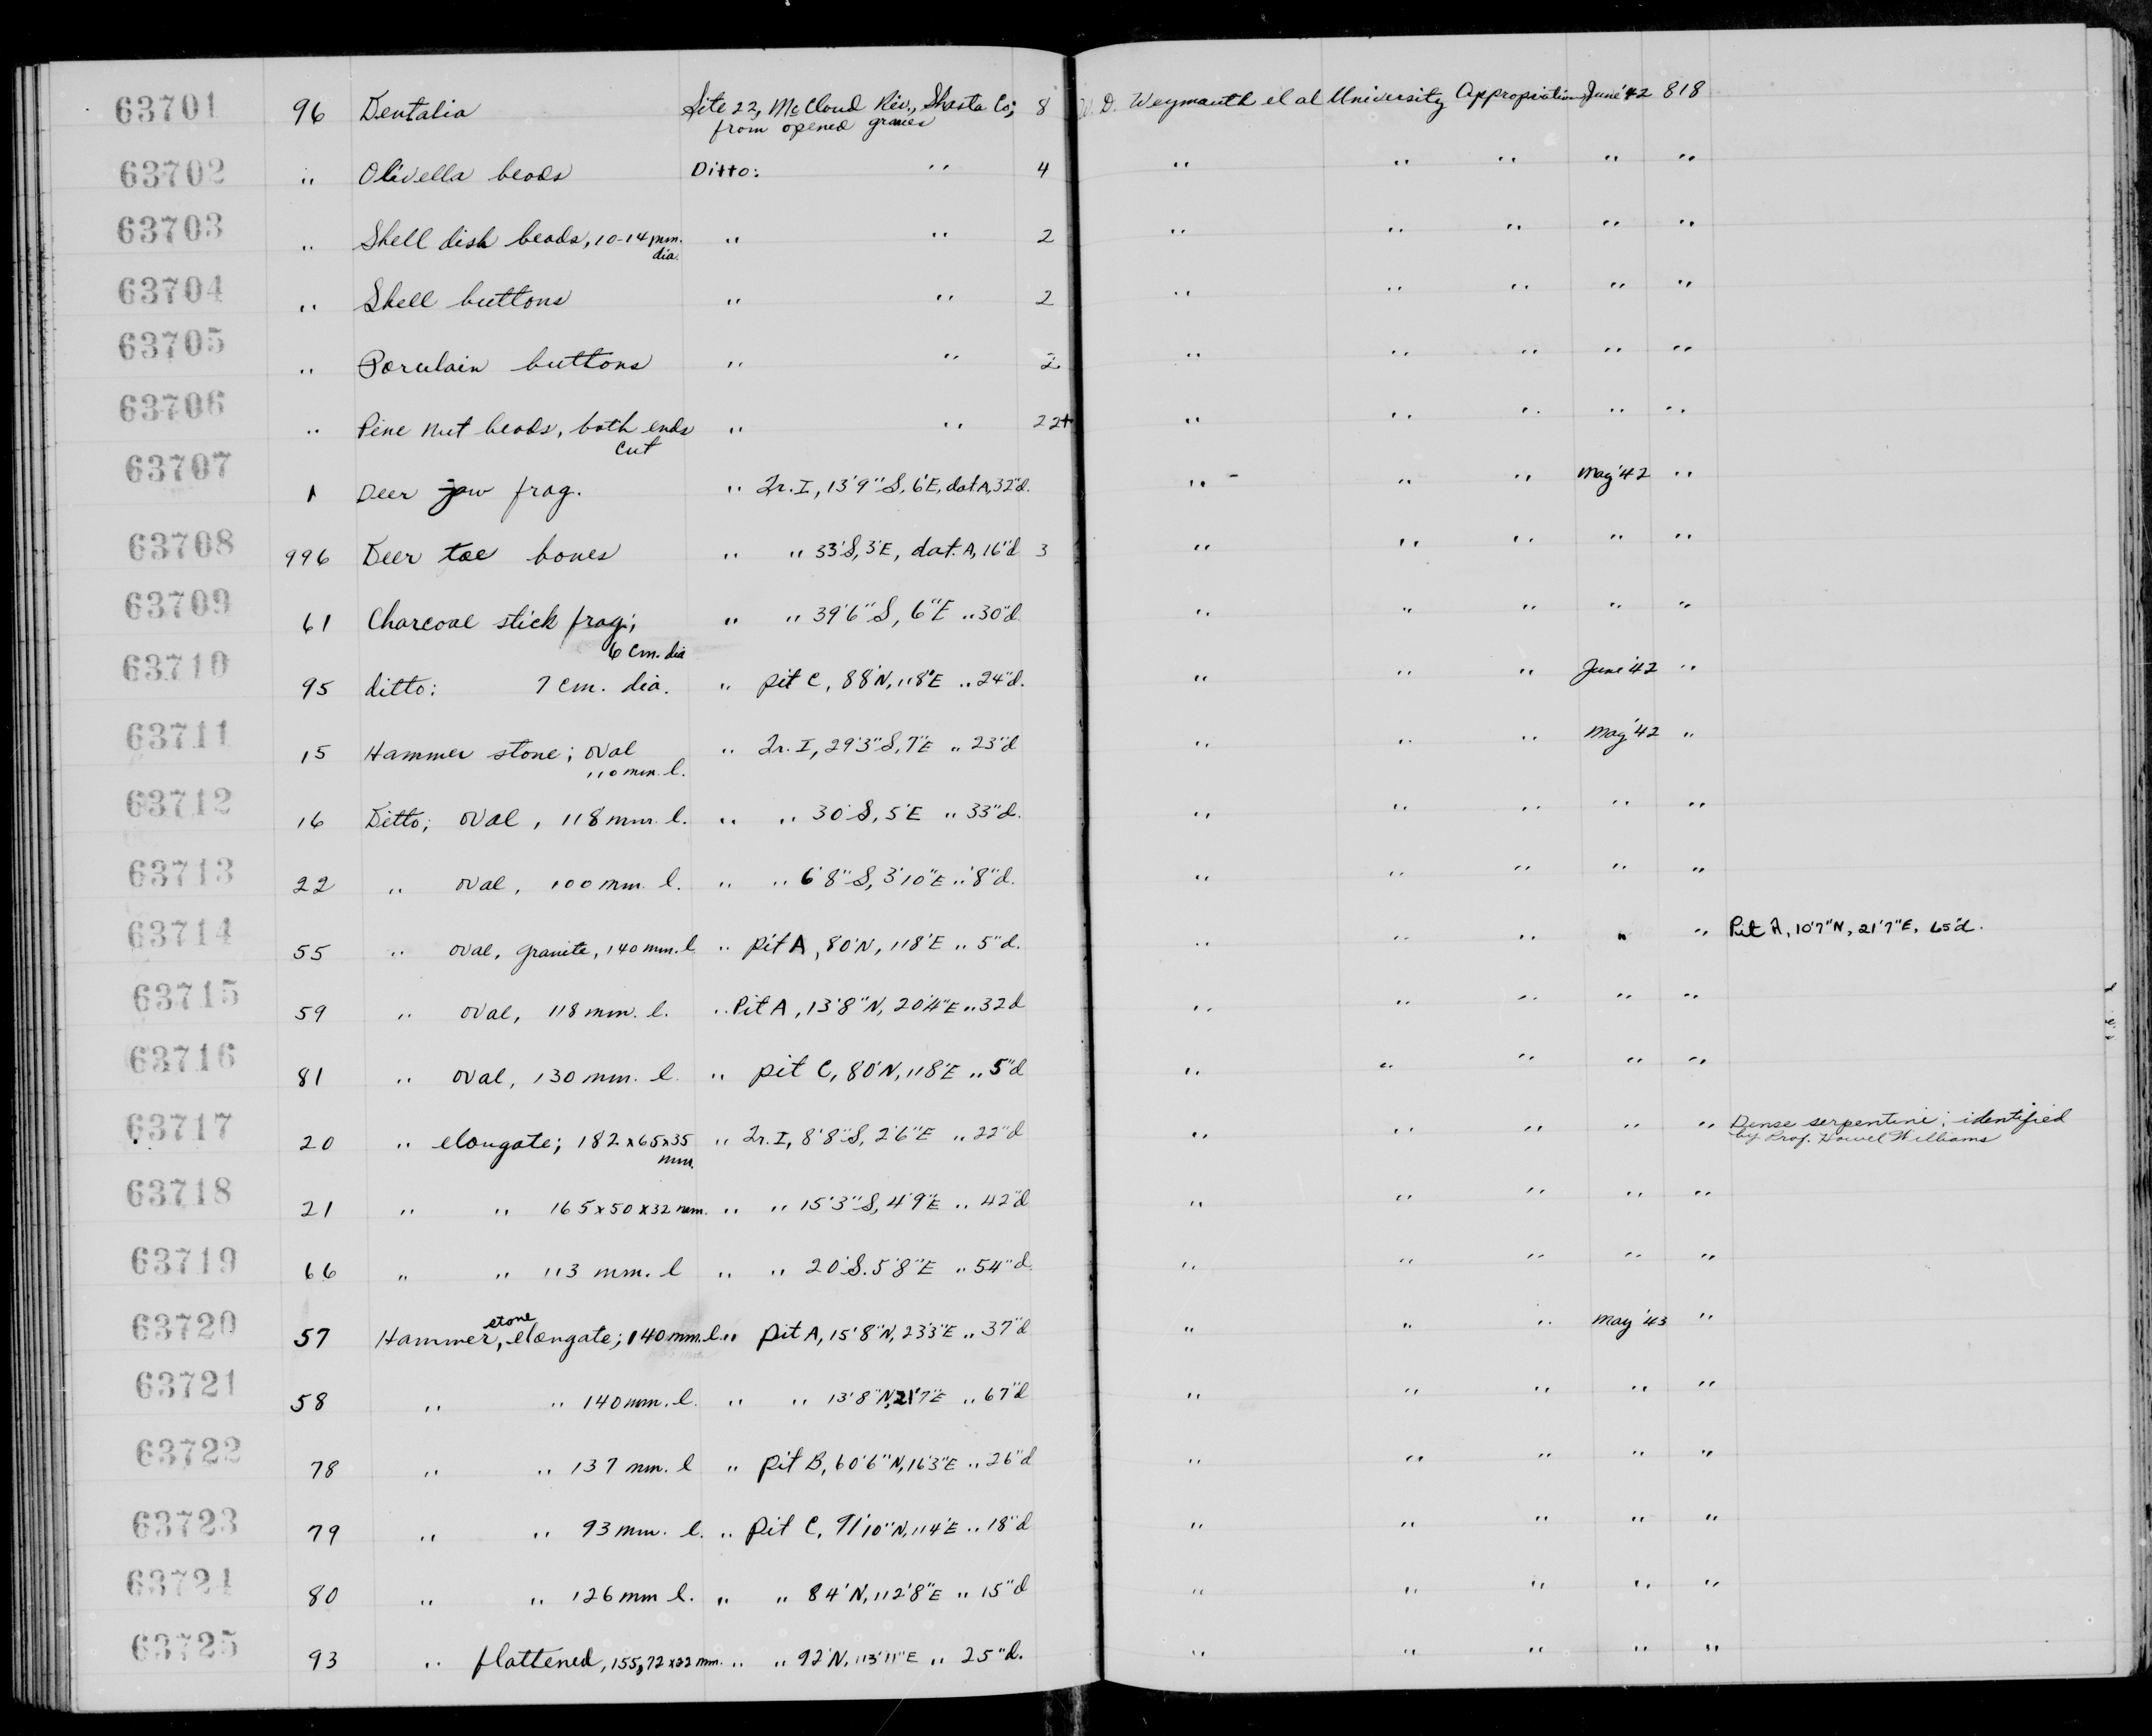 63701 96 Dentalia Site 22, McCloud Riv., Shasta Co; 8 D. Weymouth et al University Appropriation June '42 818
from opened graves
63702 " Olivella beads Ditto: " 4 " " " " "
63703 " Shell disk beads, 10-14 mm. " " 2 " " " " "
dia.
63704 " Shell buttons " " 2 " " " " "
63705 " Porculain buttons " " 2 " " " " "
63706 " Pine nut beads, both ends " " 22+ " " " " "
cut
63707 1 Deer jaw frag. " Tr. I, 13'9"S, 6'E, dat A, 32"d. " " " May '42 "
63708 996 Deer toe bones " " 33'S, 3'E, dat. A, 16"d 3 " " " " "
63709 61 Charcoal stick frag; " " 39'6"S, 6"E " 30"d. " " " " "
6 cm. dia
63710 95 ditto: 7 cm. dia. " pit C, 88'N, 118'E " 24"d. " " " June '42 "
63711 15 Hammer stone; oval " Tr. I, 29'3"S, 7'E " 23"d " " " May '42 "
110 mm. l.
63712 16 Ditto; oval, 118 mm. l. " " 30'S, 5'E " 33"d. " " " " "
63713 22 " oval, 100 mm. l. " " 6'8"S, 3'10"E " 8"d. " " " " "
63714 55 " oval, granite, 140 mm. l " pit A, 80'N, 118'E " 5"d. " " " " " Pit A, 10'7"N, 21'7"E, 65"d.
63715 59 " oval, 118 mm. l. " Pit A, 13'8"N, 20'4"E " 32d " " " " "
63716 81 " oval, 130 mm. l. " pit C, 80'N, 118'E " 5"d " " " " "
63717 20 " elongate; 182x65x35 " Tr. I, 8'8"S, 2'6"E " 22"d " " " " " Dense serpentine; identified
mm. by Prof. Howel Williams
63718 21 " " 165x50x32 mm. " " 15'3"S, 4'9"E " 42"d " " " " "
63719 66 " " 113 mm. l " " 20'S. 5'8"E " 54"d. " " " " "
63720 57 Hammer stone, elongate; 140 mm. l. " pit A, 15'8"N, 23'3"E " 37"d " " " May '43 "
63721 58 " " 140 mm. l. " " 13'8"N, 21'7"E " 67"d " " " " "
63722 78 " " 137 mm. l " pit B, 60'6"N, 16'3"E " 26"d " " " " "
63723 79 " " 93 mm. l. " pit C, 91'10"N, 114'E " 18"d " " " " "
63724 80 " " 126 mm l. " " 84'N, 112'8"E " 15"d " " " " "
63725 93 " flattened, 155x72x22 mm. " " 92'N, 113'11"E " 25"d. " " " " "